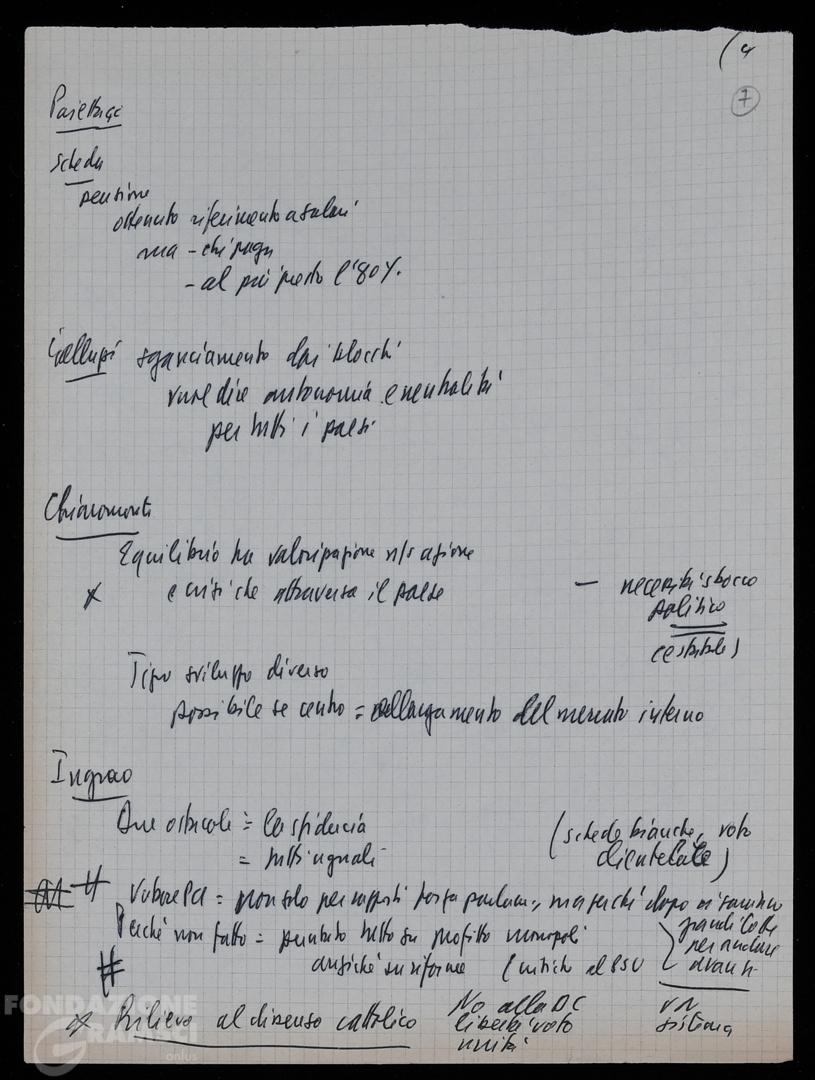 (4
7
Scheda
pensione
ottenuto riferimento a salari
ma - chi paga
- al più presto l'80%.
Gallupi sganciamento dai blocchi
vuol dire autonomia e neutralità
per tutti i paesi
Chiaromonte
Equilibrio ha valorizzazione n/s azione
x e critiche attraversa il paese
— necessità sbocco
politico
Tipo sviluppo diverso
possibile se centro = allargamento del mercato interno
Ingrao
Due ostacoli = la sfiducia
= tutti uguali
(schede bianche, voto
clientelare)
# Votare PCI = non solo per rapporti forza parlam., ma perché dopo ci saranno
grandi lotte
per andare
avanti
Perché non fatto = puntato tutto su profitto monopoli
# anziché su riforme (critiche al PSU
x Rilievo al dissenso cattolico
No alla DC
libertà voto
unità
un
sistema
FONDAZIONE
GRAMSCI
onlus